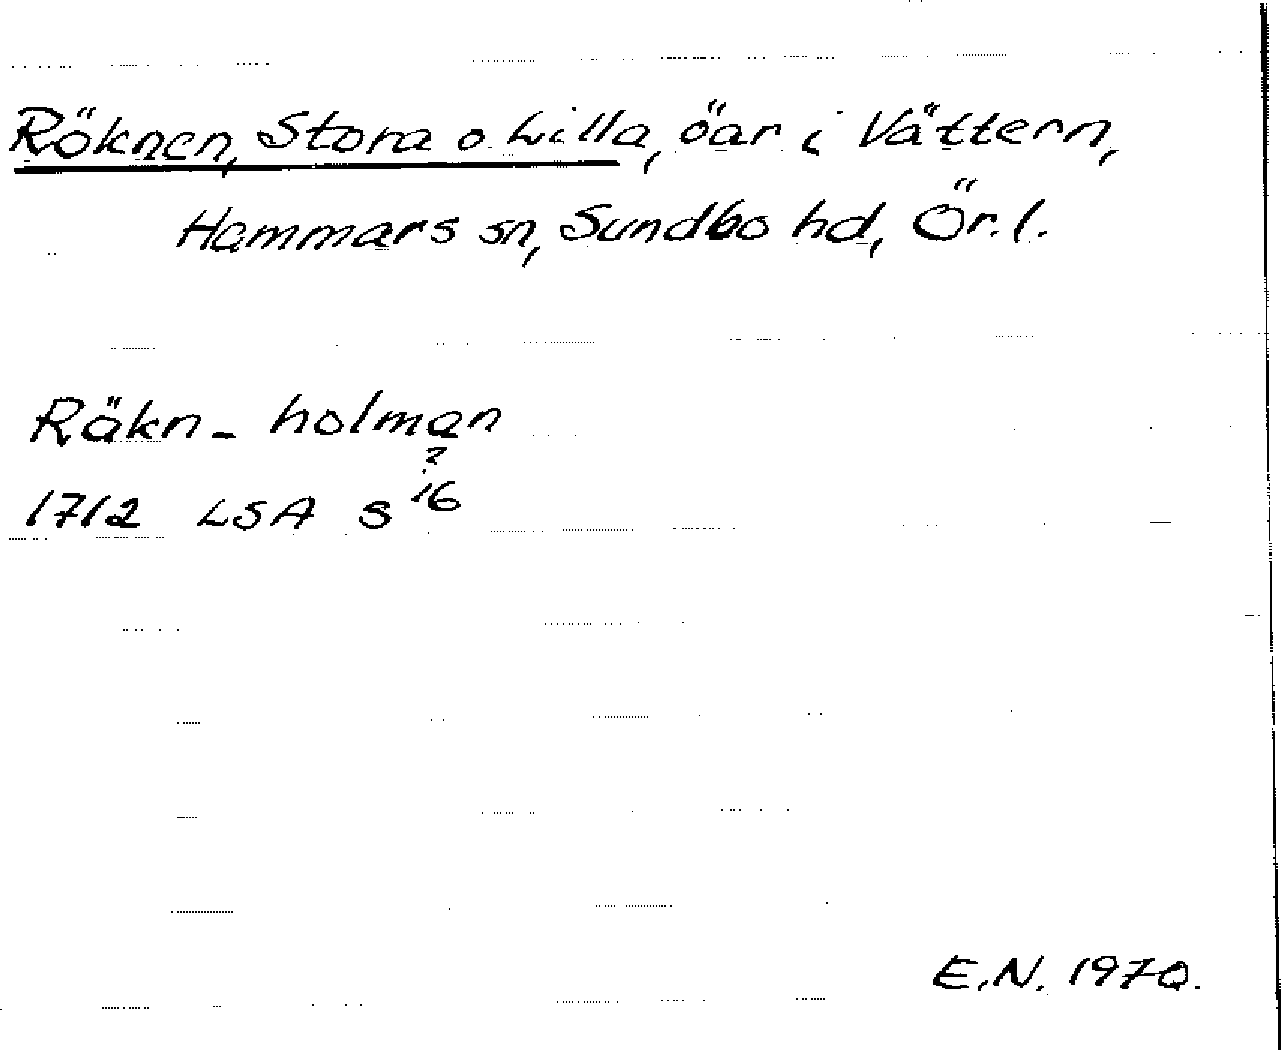 Röknen, Stora o Lilla, öar i Vättern,
Hammars sn, Sundbo hd, Ör. l.
Räkn- holman
?
1712 LSA S 16
E.N. 1970.